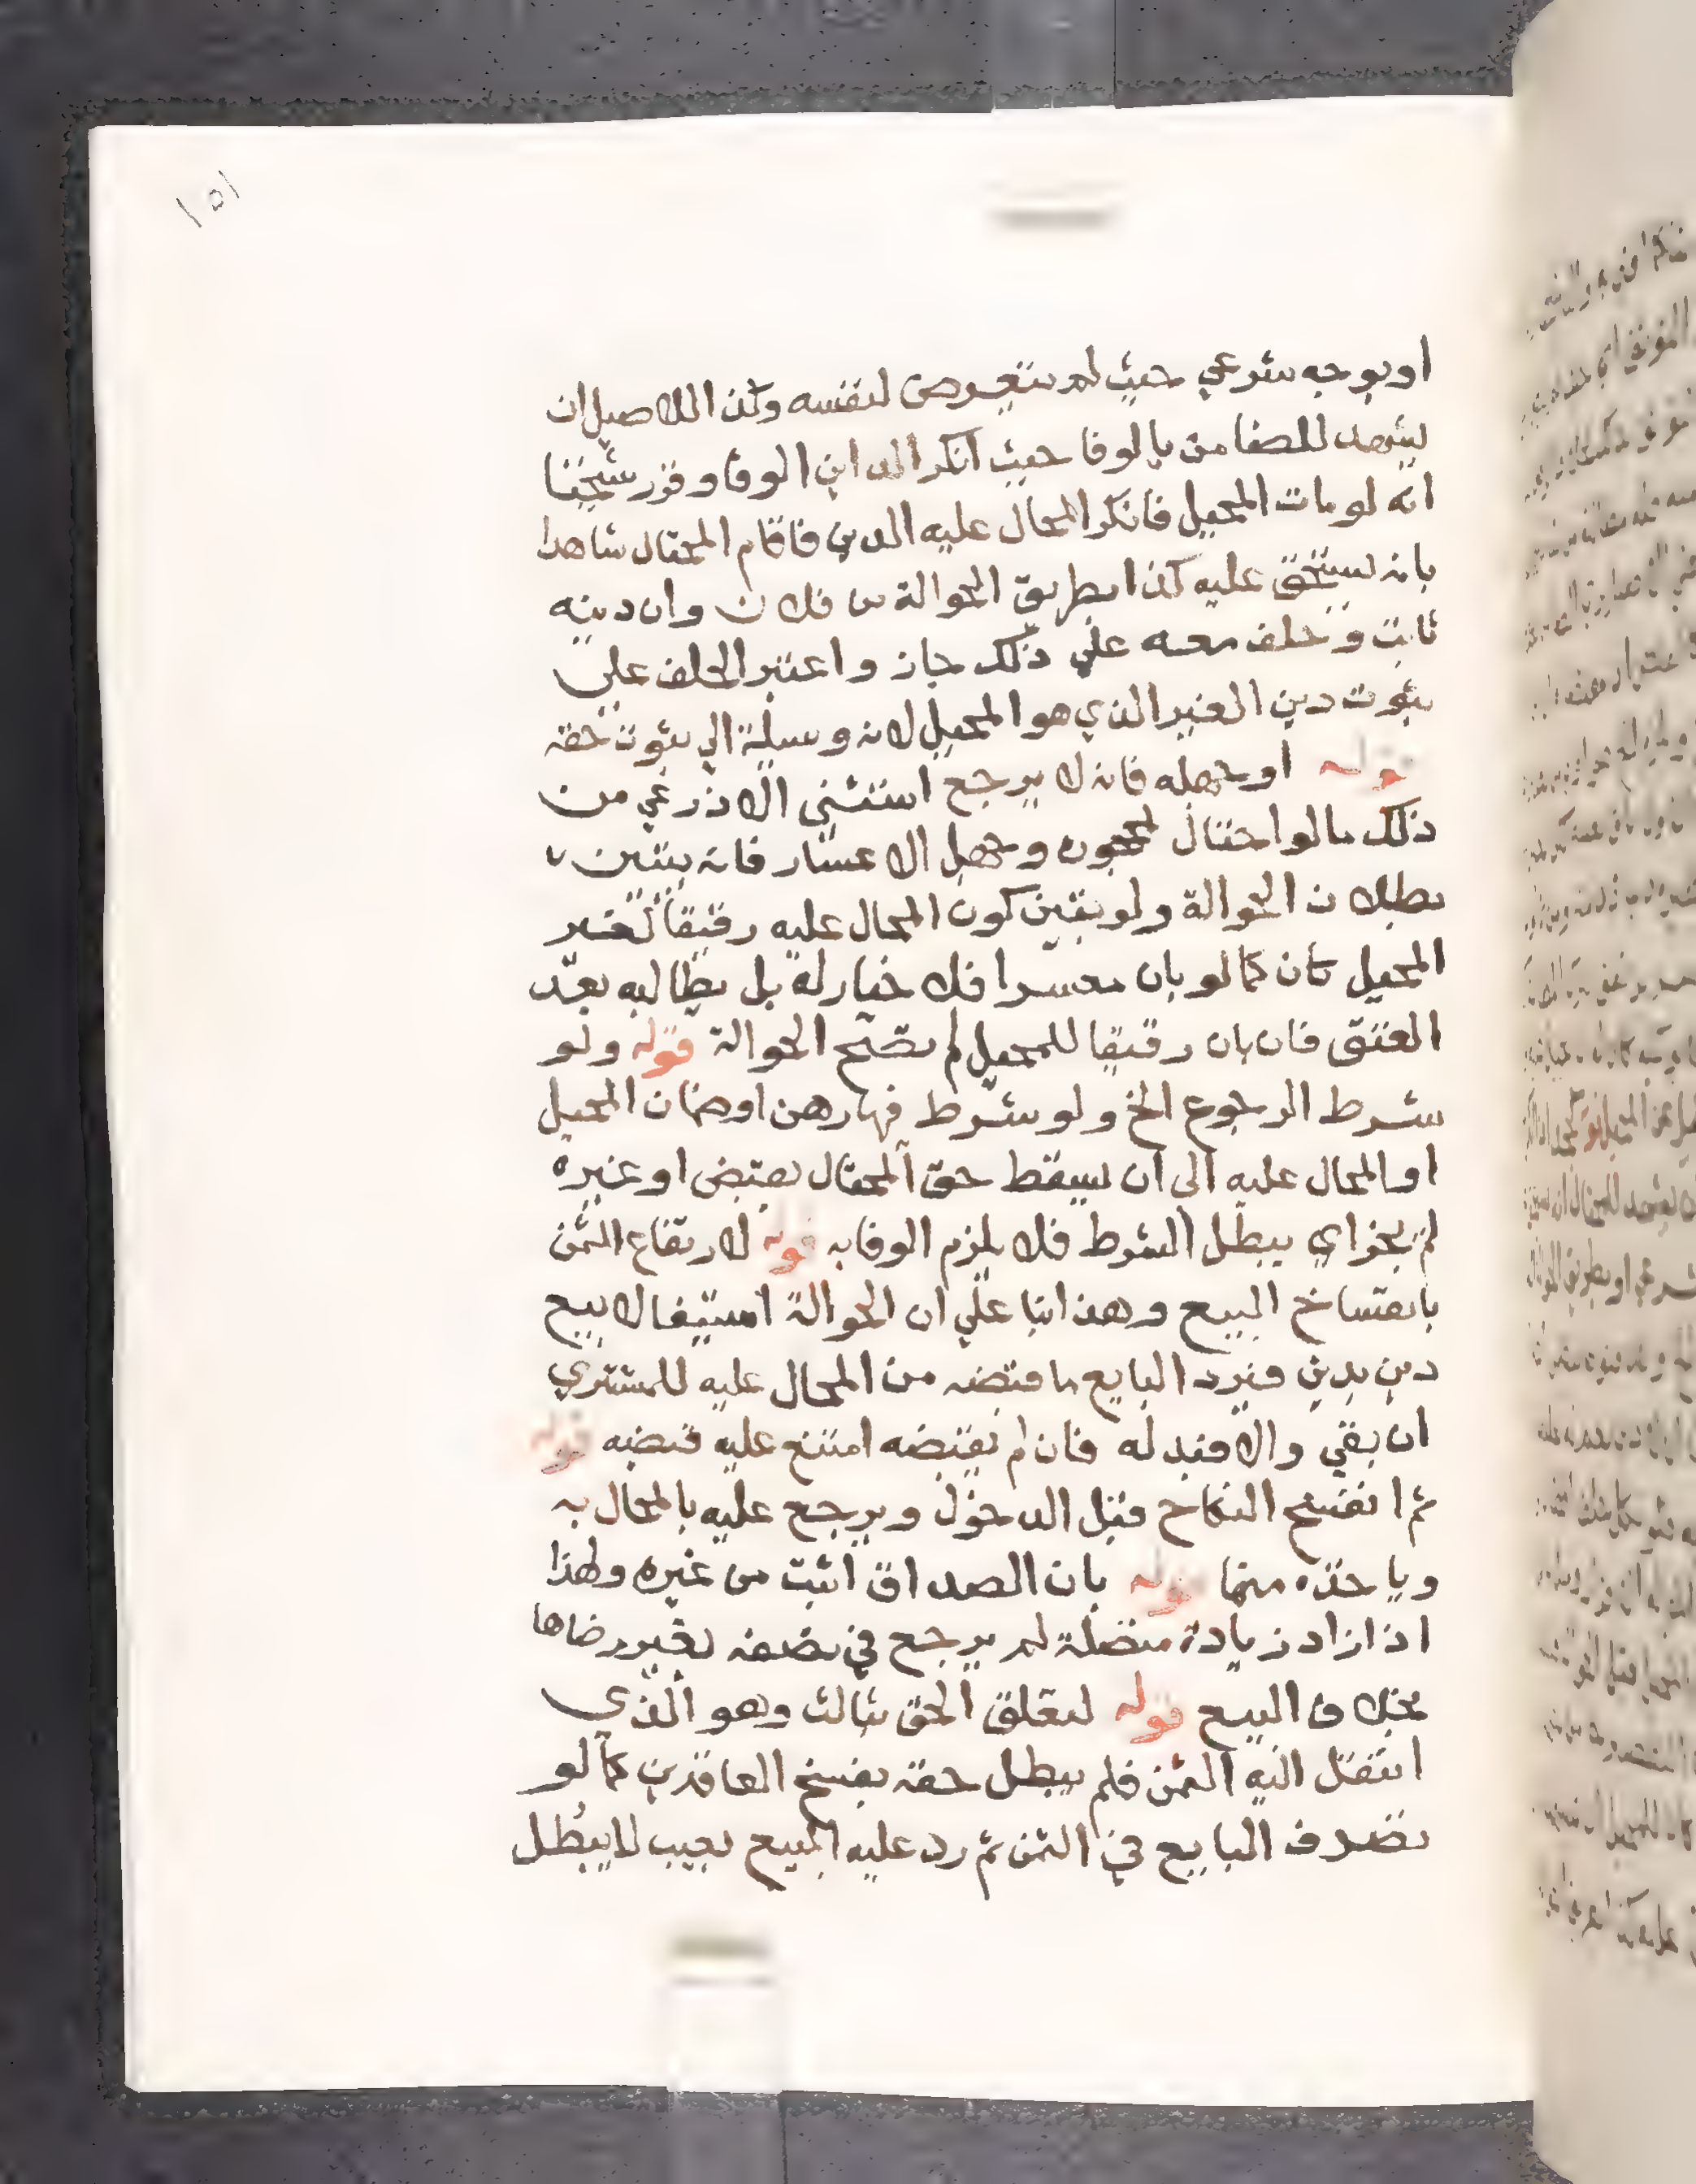 ١٥١
او بوجه شرعي حيث لم يتعرض لنفسه وكذا للاصيل ان
يشهد للضامن بالوفا حيث انكر الداين الوفا وقرر شيخنا
انه لو مات المحيل فانكر المحال عليه الدين فاقام المحتال شاهدا
بانه يستحق عليه كذا بطريق الحوالة من فلان وان دينه
ثابت وحلف معه على ذلك جاز واعتبر الحلف على
ثبوت دين الغير الذي هو المحيل لانه وسيلة الي ثبوت حقه
قوله او جهله فانه لا يرجع استثنى الاذرعي من
ذلك ما لو احتال لمحجور وجهل الاعسار فانه يتبين
بطلان الحوالة ولو تبين كون المحال عليه رقيقا لغير
المحيل كان كما لو بان معسرا فلا خيار له بل يطالبه بعد
العتق فان بان رقيقا للمحيل لم تصح الحوالة قوله ولو
شرط الرجوع الخ ولو شرط فيها رهن او ضمان المحيل
او المحال عليه الى ان يسقط حق المحتال بقبض او غيره
لم يجز اي يبطل الشرط فلا يلزم الوفا به قوله لارتفاع الثمن
بانفساخ البيع وهذا بنا علي ان الحوالة استيفا لا بيع
دين بدين فيرد البايع ما قبضه من المحال عليه للمشتري
ان بقي والا فبدله فان لم يقبضه امتنع عليه قبضه قوله
ثم انفسخ النكاح قبل الدخول ويرجع عليه بالمحال به
وياخذه منها قوله بان الصداق اثبت من غيره ولهذا
اذا زاد زيادة متصلة لم يرجع في نصفه بغير رضاها
بخلاف البيع قوله لتعلق الحق بثالث وهو الذي
انتقل اليه الثمن فلم يبطل حقه بفسخ العاقدين كما لو
تصرف البايع في الثمن ثم رد عليه المبيع بعيب لا يبطل